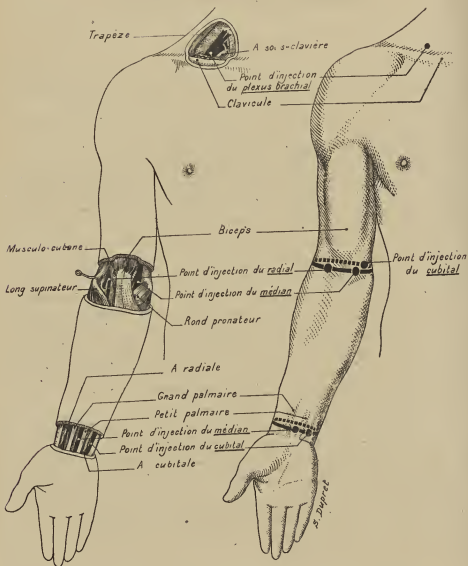 Trapèze
A sous-clavière
Point d'injection
du plexus brachial
Clavicule
Biceps
Musculo-cutané
Point d'injection du radial
Point d'injection
du cubital
Long supinateur
Point d'injection du médian
Rond pronateur
A radiale
Grand palmaire
Petit palmaire
Point d'injection du médian
Point d'injection du cubital
A cubitale
S. Dupret